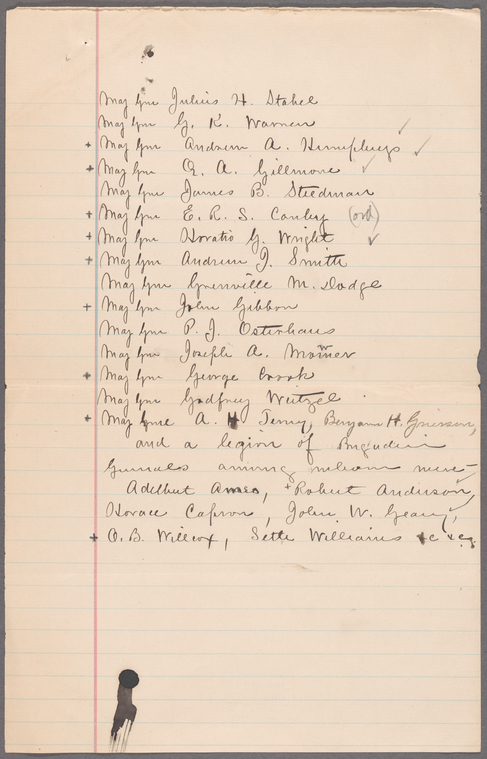 Maj Gen Julius H. Stahel
Maj Gen G. K. Warren
+ Maj Gen Andrew A. Humphreys ✓
+ Maj Gen Q. A. Gillmore ✓
Maj Gen James B. Steedman
+ Maj Gen E. R. S. Canby (ord)
+ Maj Gen Horatio G. Wright ✓
+ Maj Gen Andrew J. Smith
Maj Gen Grenville M. Dodge
+ Maj Gen John Gibbon
Maj Gen P. J. Osterhaus
Maj Gen Joseph A. Mower
+ Maj Gen George Crook
Maj Gen Godfrey Weitzel
+ Maj Gen A. H. Terry, Benjamin H. Grierson,
and a legion of Brigadier
Generals among whom were—
Adelbert Ames, + Robert Anderson,
Horace Capron, John W. Geary,
+ O. B. Willcox, Seth Williams &c &c.